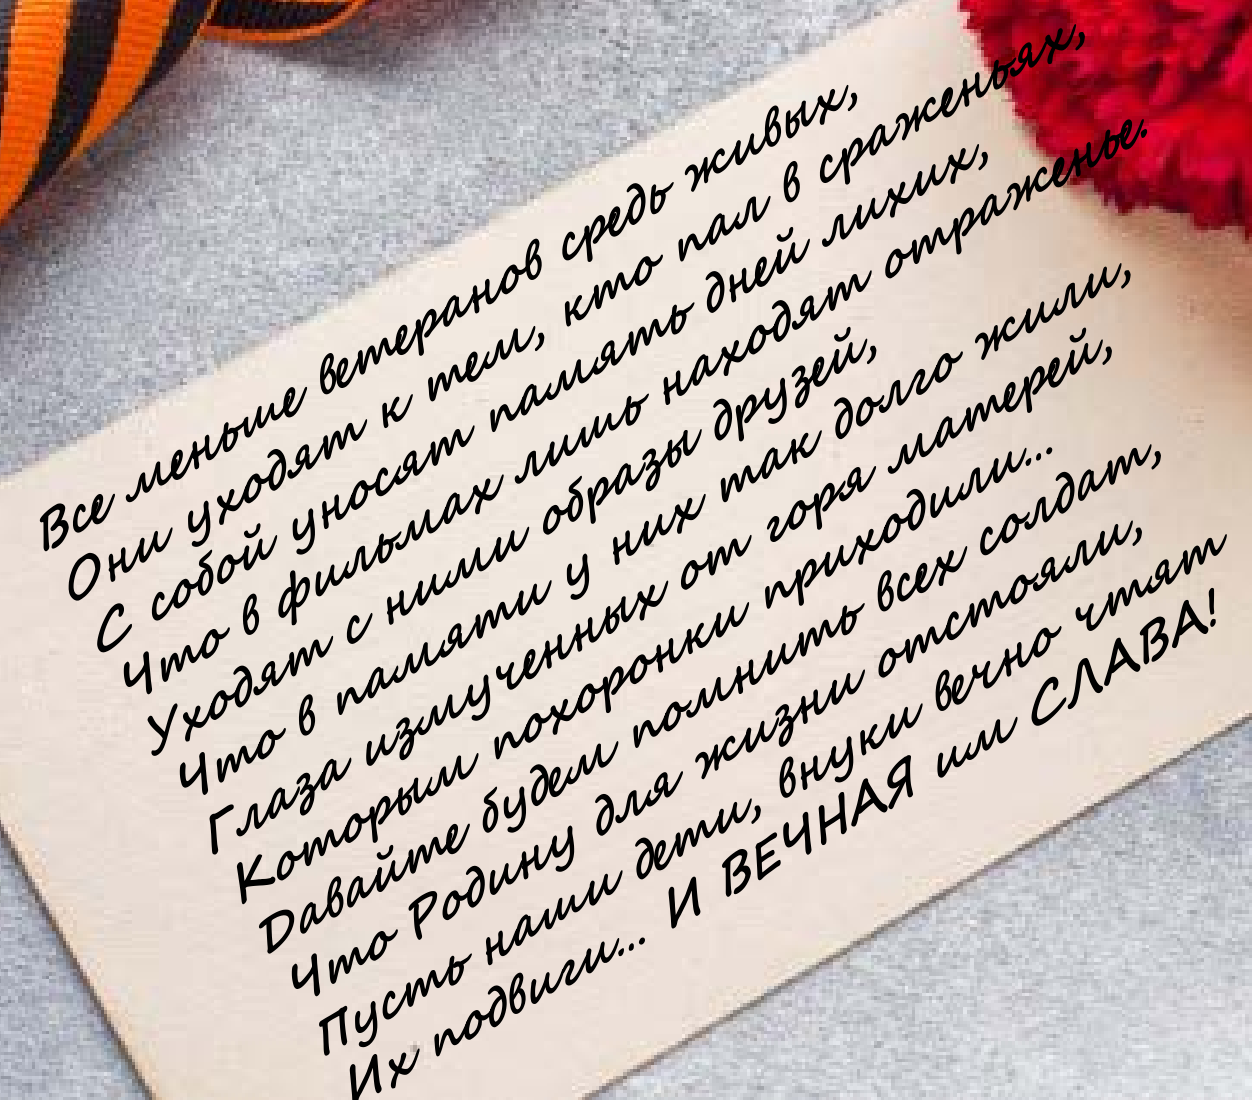 Все меньше ветеранов средь живых,
Они уходят к тем, кто пал в сраженьях,
С собой уносят память дней лихих,
Что в фильмах лишь находят отраженье.
Уходят с ними образы друзей,
Что в памяти у них так долго жили,
Глаза измученных от горя матерей,
Которым похоронки приходили...
Давайте будем помнить всех солдат,
Что Родину для жизни отстояли,
Пусть наши дети, внуки вечно чтят
Их подвиги... И ВЕЧНАЯ им СЛАВА!